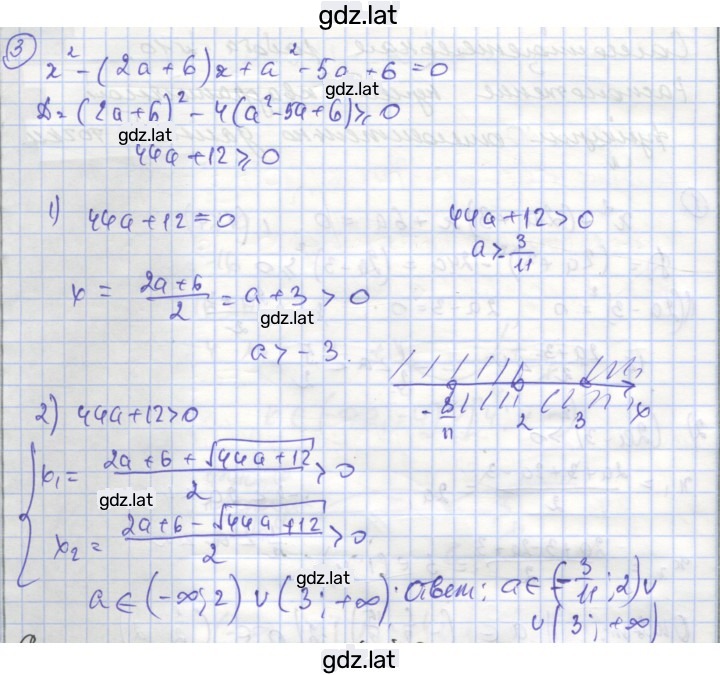 gdz.lat
3
x² - (2a + 6)x + a² - 5a + 6 = 0
D = (2a + 6)² - 4(a² - 5a + 6) ≥ 0
gdz.lat
44a + 12 ≥ 0
1) 44a + 12 = 0
44a + 12 > 0
a > -3/11
x = (2a + 6)/2 = a + 3 > 0
gdz.lat
a > -3.
-3/11 2 3 x
2) 44a + 12 > 0
x₁ = (2a + 6 + √(44a + 12))/2 > 0
gdz.lat
x₂ = (2a + 6 - √(44a + 12))/2 > 0
gdz.lat
a ∈ (-∞; 2) ∪ (3; +∞). Ответ: a ∈ [-3/11; 2) ∪
∪ (3; +∞)
gdz.lat